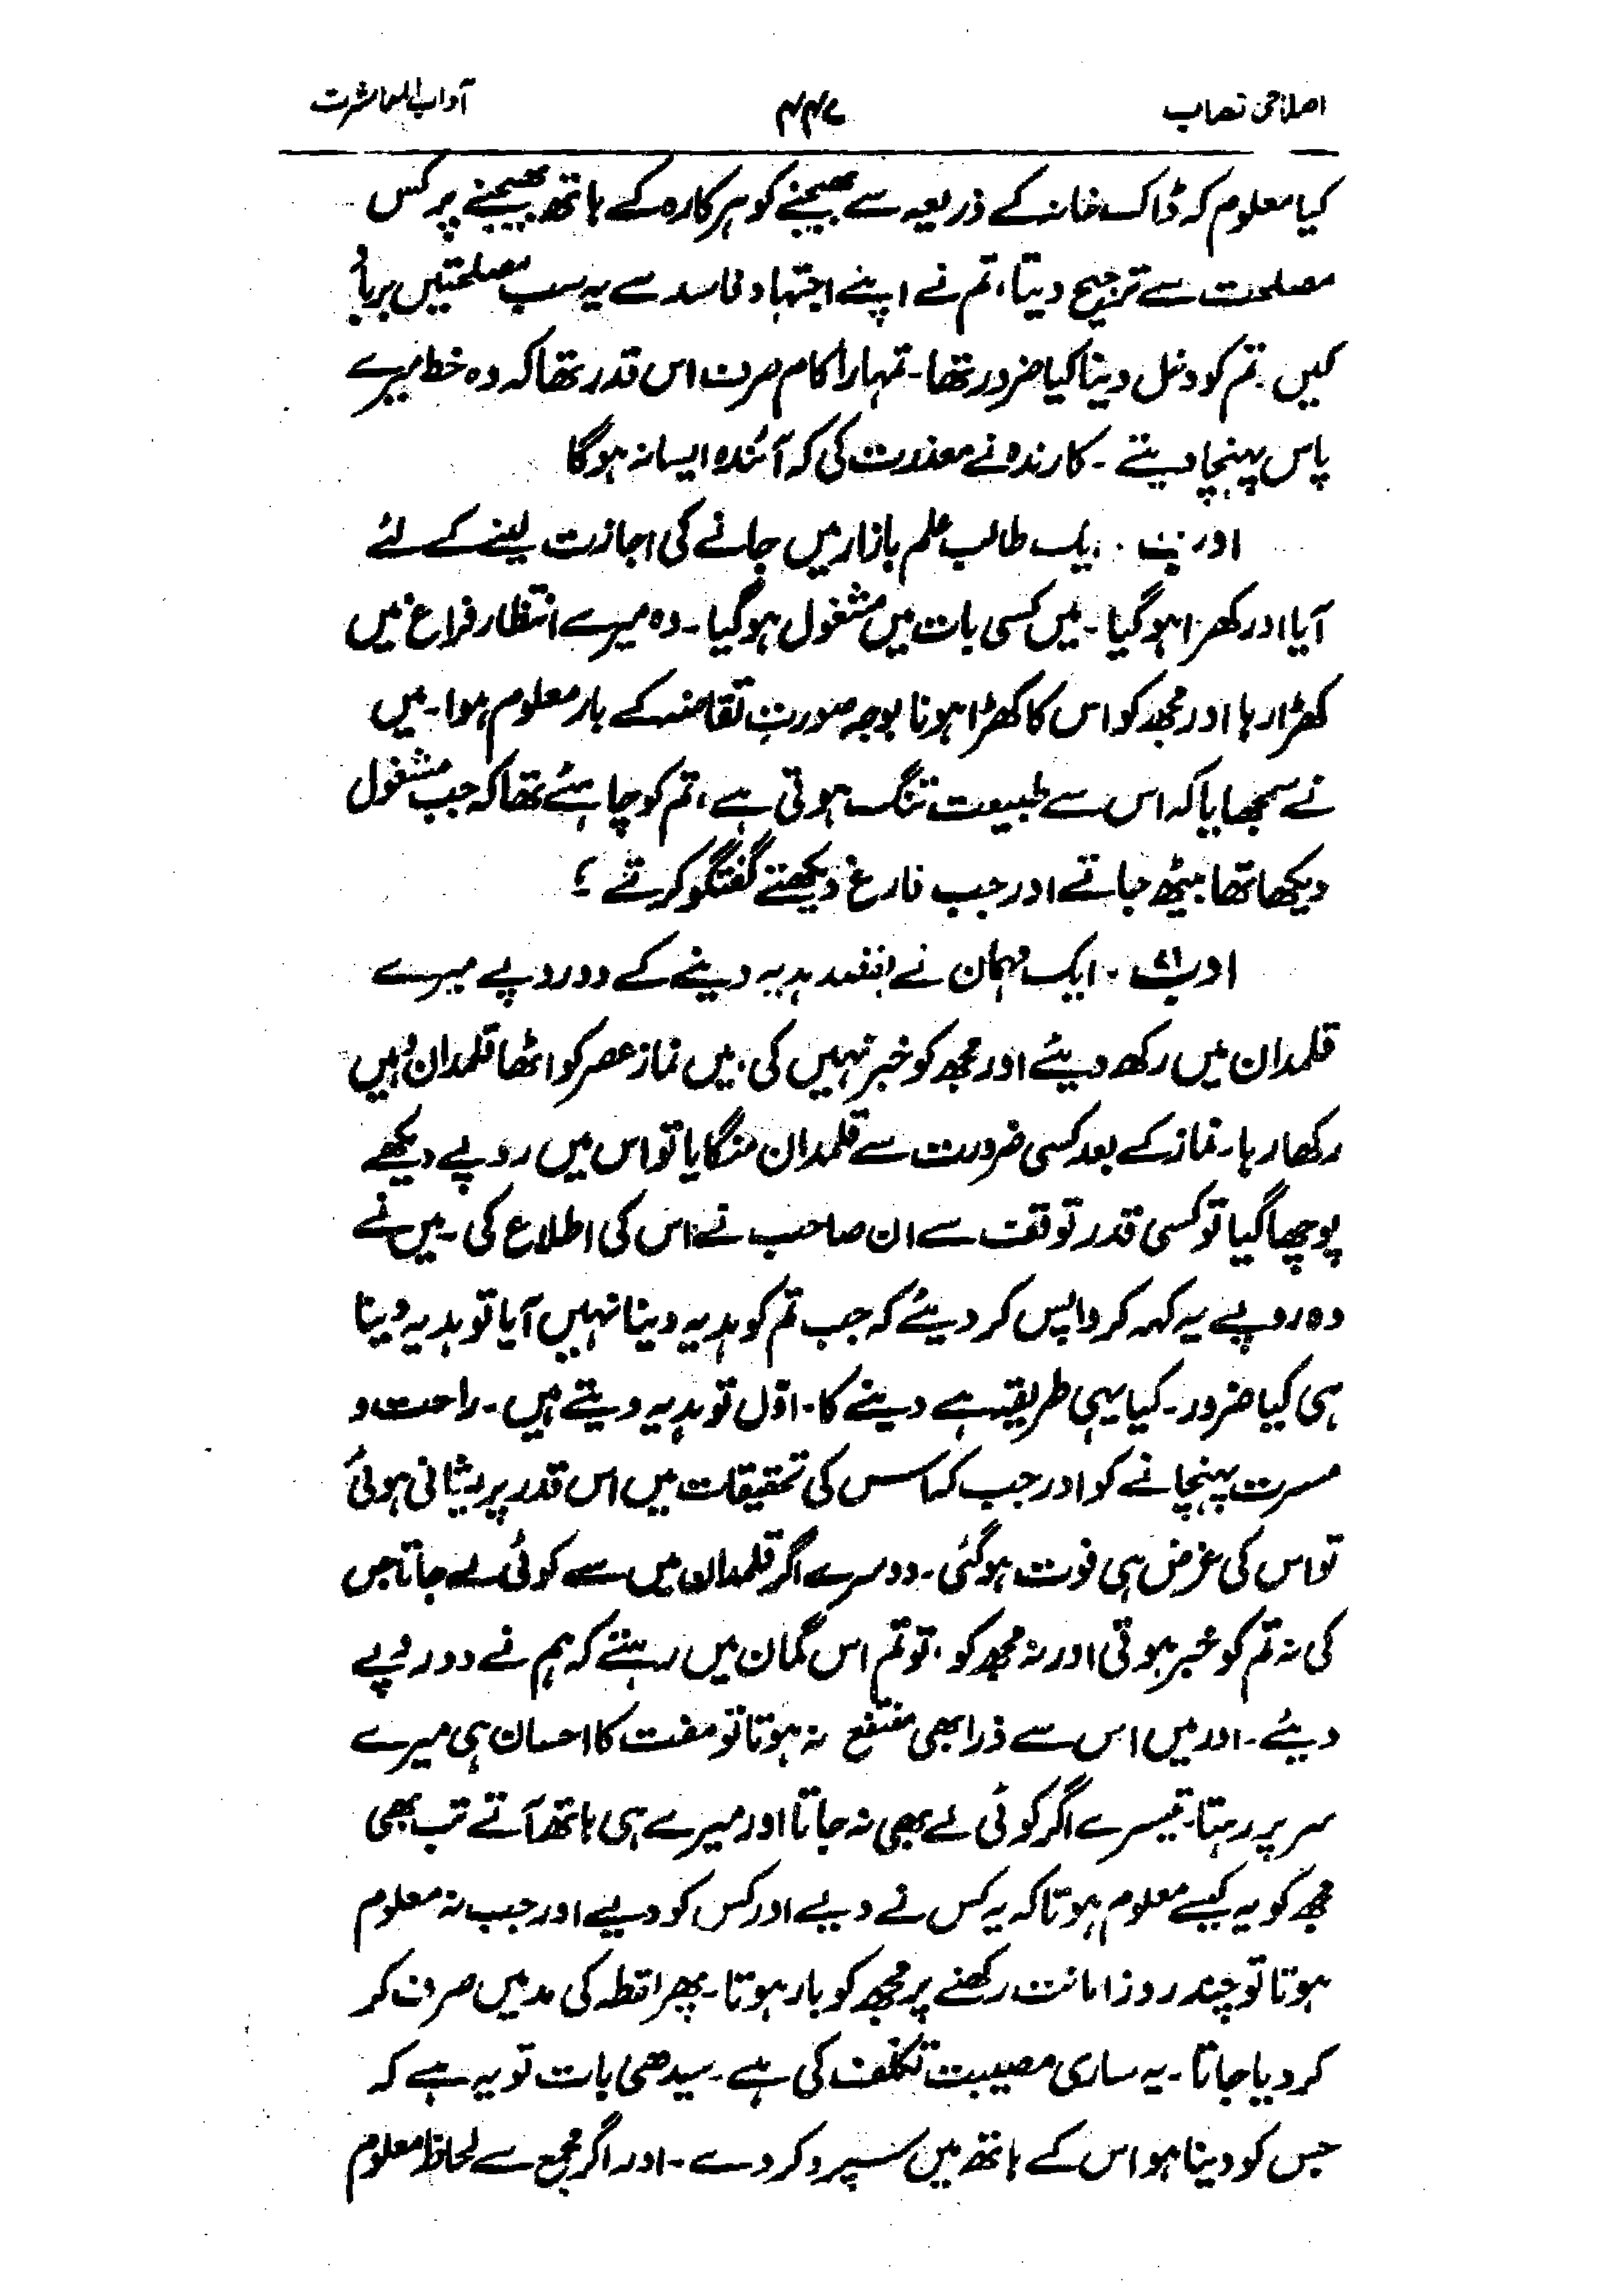 اصلاحی نصاب ۴۴۷ آداب المعاشرت
کیا معلوم کہ ڈاک خانہ کے ذریعہ سے بھیجنے کو ہرکارہ کے ہاتھ بھیجنے پر کس
مصلحت سے ترجیح دیتا، تم نے اپنے اجتہاد فاسد سے یہ سب مصلحتیں برپا
کیں۔ تم کو دخل دینا کیا ضرور تھا۔ تمہارا کام صرف اس قدر تھا کہ وہ خط میرے
پاس پہنچا دیتے ۔ کارندہ نے معذرت کی کہ آئندہ ایسا نہ ہوگا
ادب ایک طالب علم بازار میں جانے کی اجازت لینے کے لئے
آیا اور کھڑا ہوگیا ۔ میں کسی بات میں مشغول ہوگیا۔ وہ میرے انتظار فراغ میں
کھڑا رہا اور مجھ کو اس کا کھڑا ہونا بوجہ صورتِ تقاضہ کے بار معلوم ہوا۔ میں
نے سمجھایا کہ اس سے طبیعت تنگ ہوتی ہے، تم کو چاہئے تھا کہ جب مشغول
دیکھا تھا بیٹھ جاتے اور جب فارغ دیکھتے گفتگو کرتے ؛
ادب ۔ ایک مہمان نے بقصد ہدیہ دینے کے دو روپے میرے
قلمدان میں رکھ دیئے اور مجھ کو خبر نہیں کی۔ میں نماز عصر کو اٹھا قلمدان وہیں
رکھا رہا، نماز کے بعد کسی ضرورت سے قلمدان منگایا تو اس میں روپے دیکھے
پوچھا گیا تو کسی قدر توقف سے ان صاحب نے اس کی اطلاع کی ۔ میں نے
وہ روپے یہ کہہ کر واپس کر دیئے کہ جب تم کو ہدیہ دینا نہیں آیا تو ہدیہ دینا
ہی کیا ضرور ۔ کیا یہی طریقہ ہے دینے کا۔ اوّل تو ہدیہ دیتے ہیں ۔ راحت و
مسرت پہنچانے کو اور جب کہ اس کی تحقیقات میں اس قدر پریشانی ہوئی
تو اس کی غرض ہی فوت ہوگئی ۔ دوسرے اگر قلمدان میں سے کوئی لے جاتا جس
کی نہ تم کو خبر ہوتی اور نہ مجھ کو، تو تم اس گمان میں رہتے کہ ہم نے دو روپے
دیئے۔ اور میں اس سے ذرا بھی منتفع نہ ہوتا تو مفت کا احسان ہی میرے
سر پر رہتا۔ تیسرے اگر کوئی لے بھی نہ جاتا اور میرے ہی ہاتھ آتے تب بھی
مجھ کو یہ کیسے معلوم ہوتا کہ یہ کس نے دیے اور کس کو دیے اور جب نہ معلوم
ہوتا تو چند روز امانت رکھنے پر مجھ کو بار ہوتا۔ پھر لقطہ کی مد میں صرف کر
کر دیا جاتا ۔ یہ ساری مصیبت تکلف کی ہے۔ سیدھی بات تو یہ ہے کہ
جس کو دینا ہو اس کے ہاتھ میں سپرد کر دے ۔ اور اگر مجمع سے لحاظ معلوم